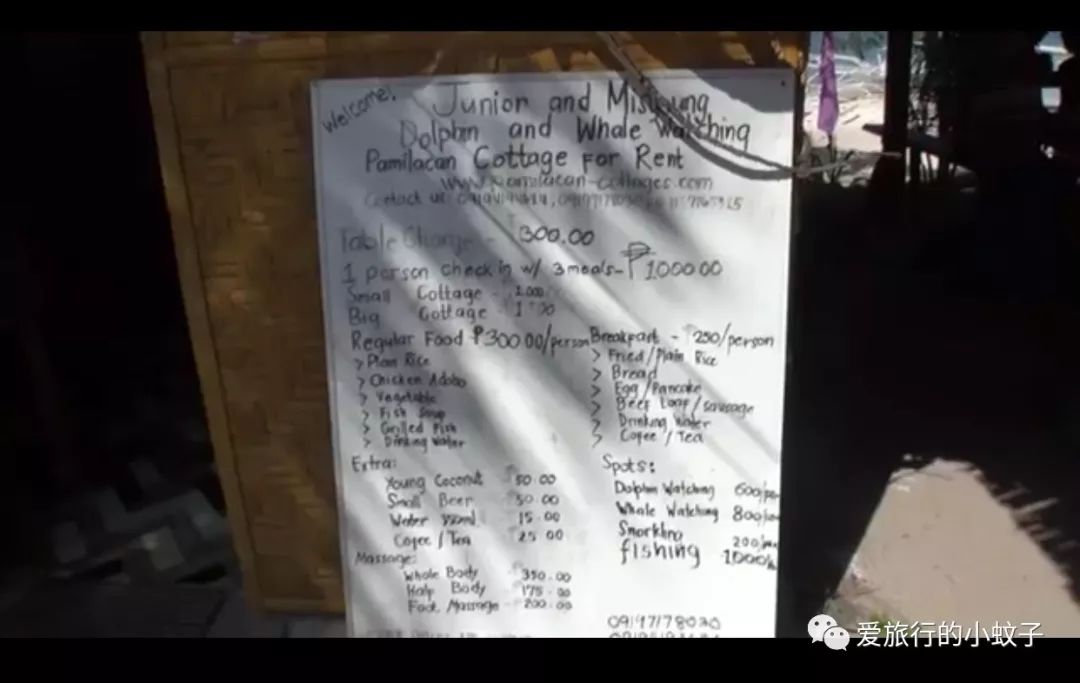 Welcome!
Junior and
Dolphin and Whale Watching
Pamilacan Cottage For Rent
www.pamilacan-cottages.com
Contact us
Table Charge - 300.00
1 person check in w/ 3 meals - ₱1000.00
Small Cottage -
Big Cottage -
Regular Food ₱300.00/person
> Plain Rice
> Chicken Adobo
> Vegetable
> Fish Soup
> Grilled Fish
> Drinking Water
Breakfast - 250/person
> Fried/Plain Rice
> Bread
> Egg/Pancake
> Beef Loaf/sausage
> Drinking Water
> Cofee/Tea
Extra:
Young Coconut - 50.00
Small Beer - 50.00
Water - 15.00
Cofee/Tea - 25.00
Massage:
Whole Body - 350.00
Half Body - 175.00
Foot Massage - 200.00
Spots:
Dolphin Watching 600/
Whale Watching 800/
Snorkling 200/
fishing 1000/
爱旅行的小蚊子